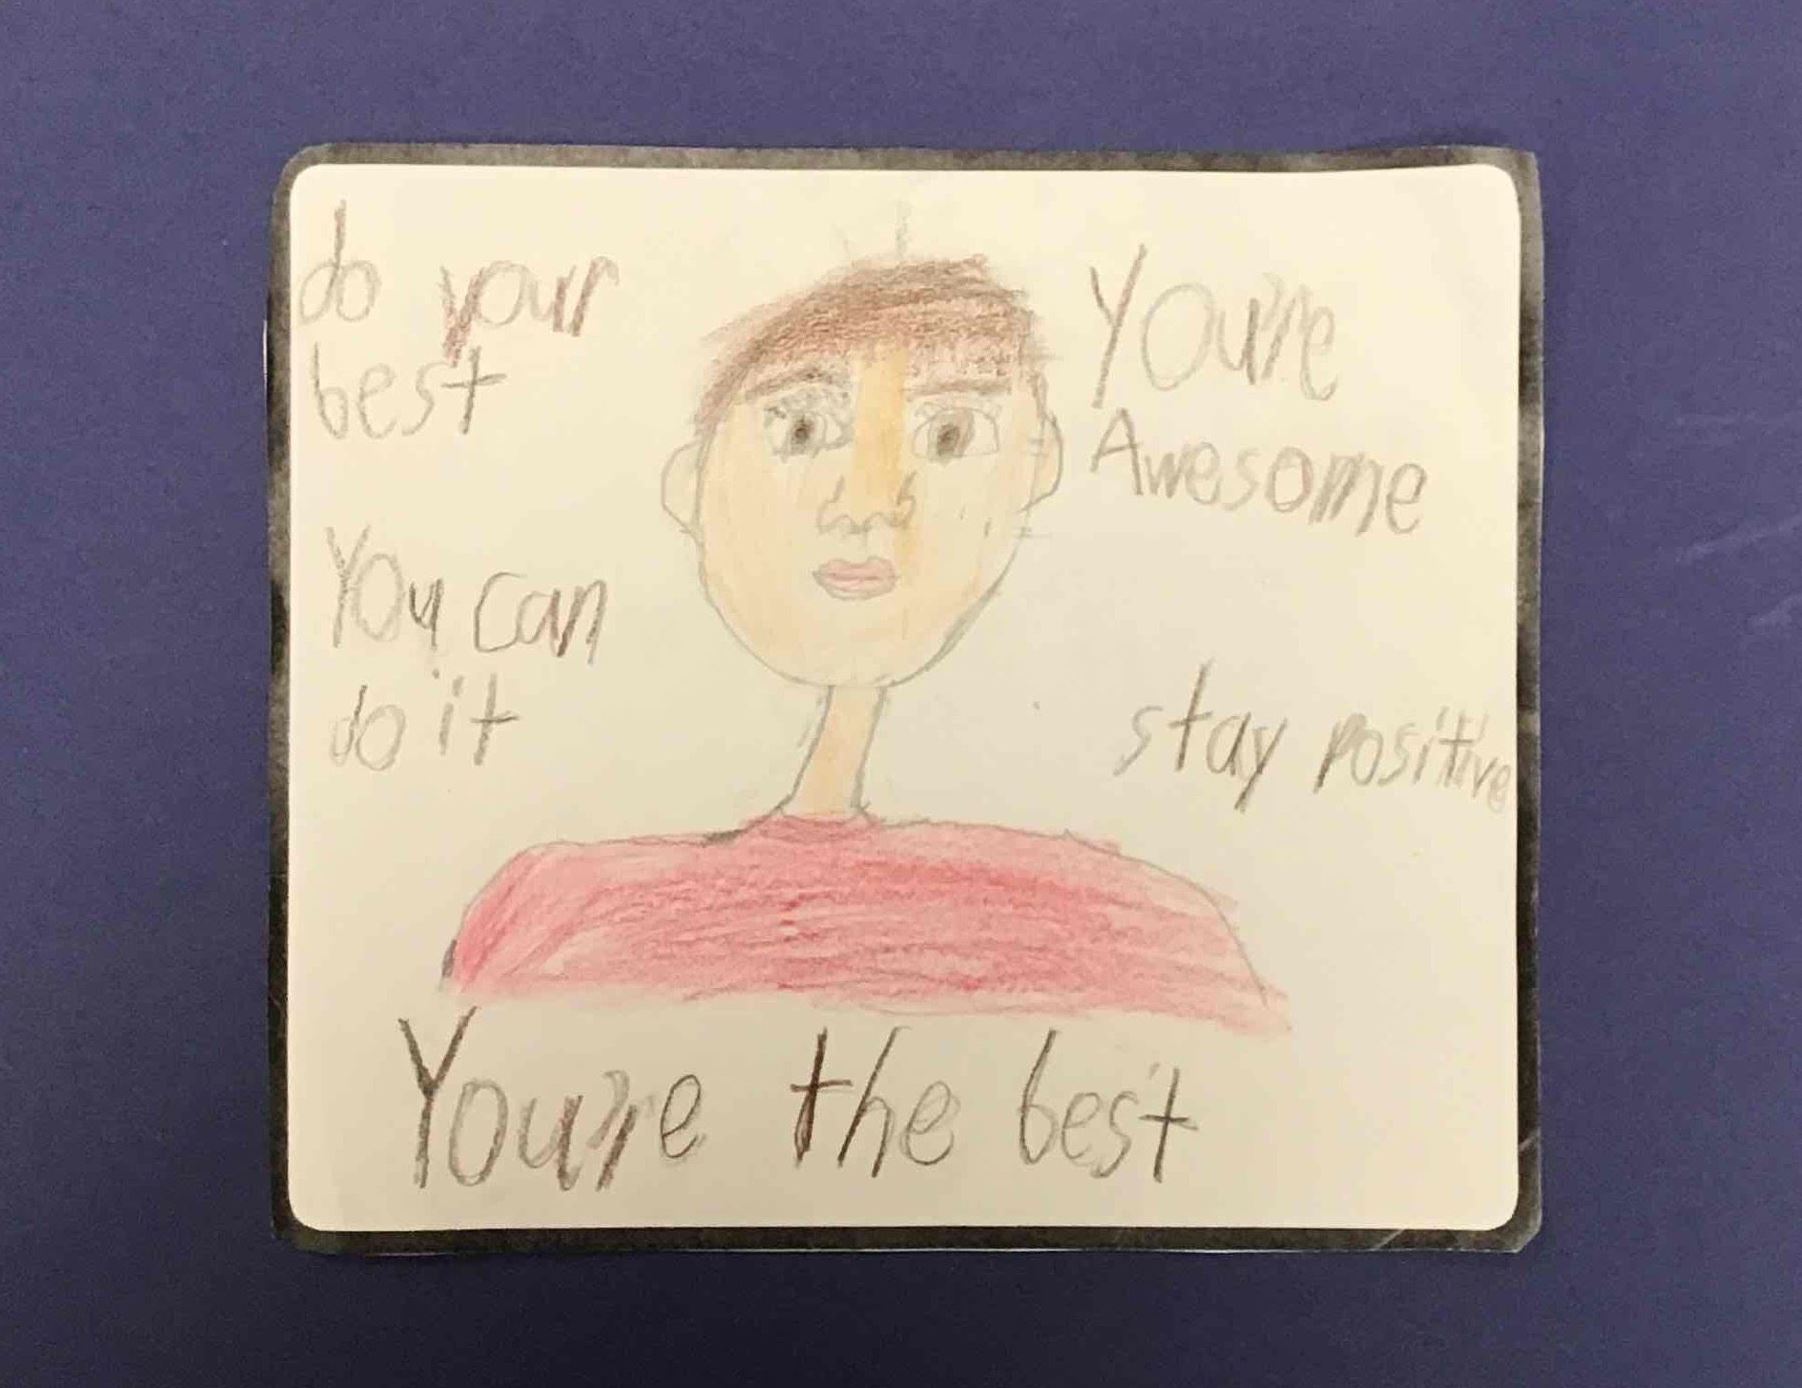 do your
best
You're
Awesome
You can
do it
stay positive
You're the best